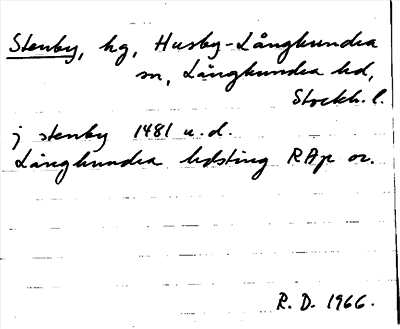 Stenby, hg, Husby-Långhundra
sn, Långhundra hd,
Stockh. l.
j stenby 1481 u.d.
Långhundra hdsting RAp or.
R. D. 1966.